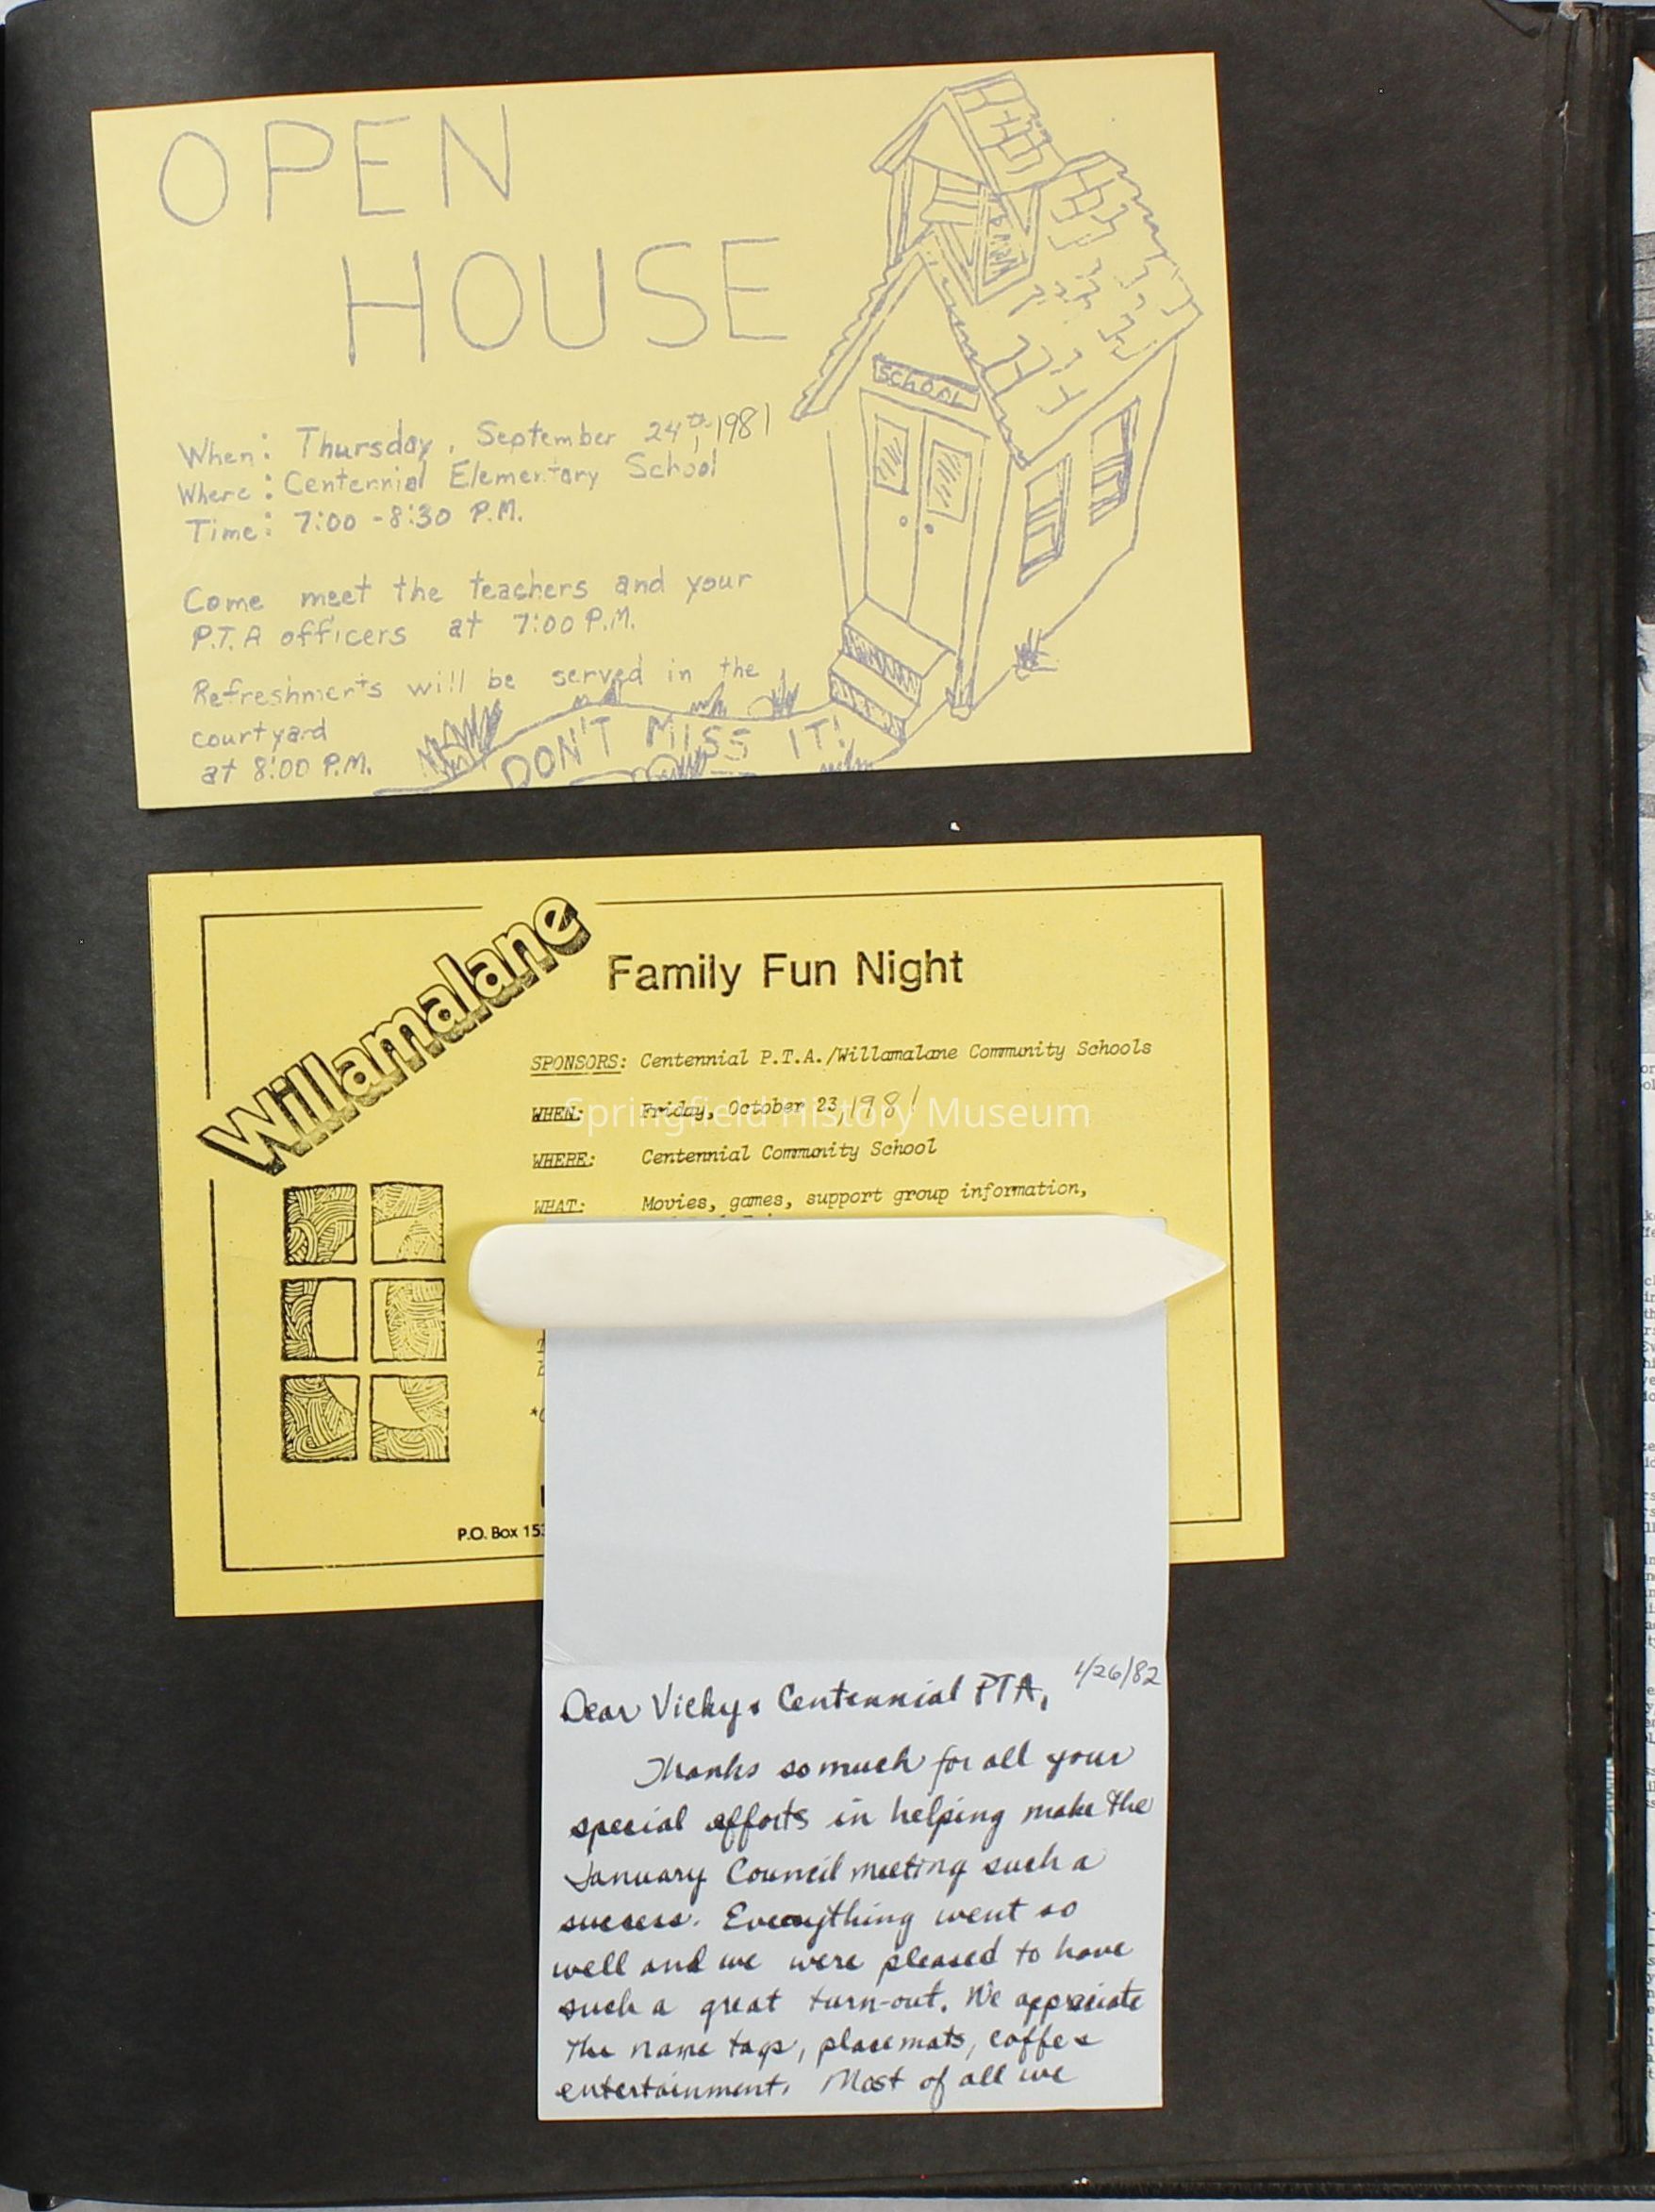 OPEN
HOUSE
SCHOOL
When: Thursday, September 24th, 1981
Where: Centennial Elementary School
Time: 7:00 - 8:30 P.M.
Come meet the teachers and your
P.T.A officers at 7:00 P.M.
Refreshments will be served in the
courtyard
at 8:00 P.M.
DON'T MISS IT!
Willamalane
Family Fun Night
SPONSORS: Centennial P.T.A./Willamalane Community Schools
WHEN: Friday, October 23, 1981
Springfield History Museum
WHERE: Centennial Community School
WHAT: Movies, games, support group information,
P.O. Box 153
1/26/82
Dear Vicky & Centennial PTA,
Thanks so much for all your
special efforts in helping make the
January Council meeting such a
success. Everything went so
well and we were pleased to have
such a great turn-out. We appreciate
the name tags, placemats, coffee
entertainment. Most of all we